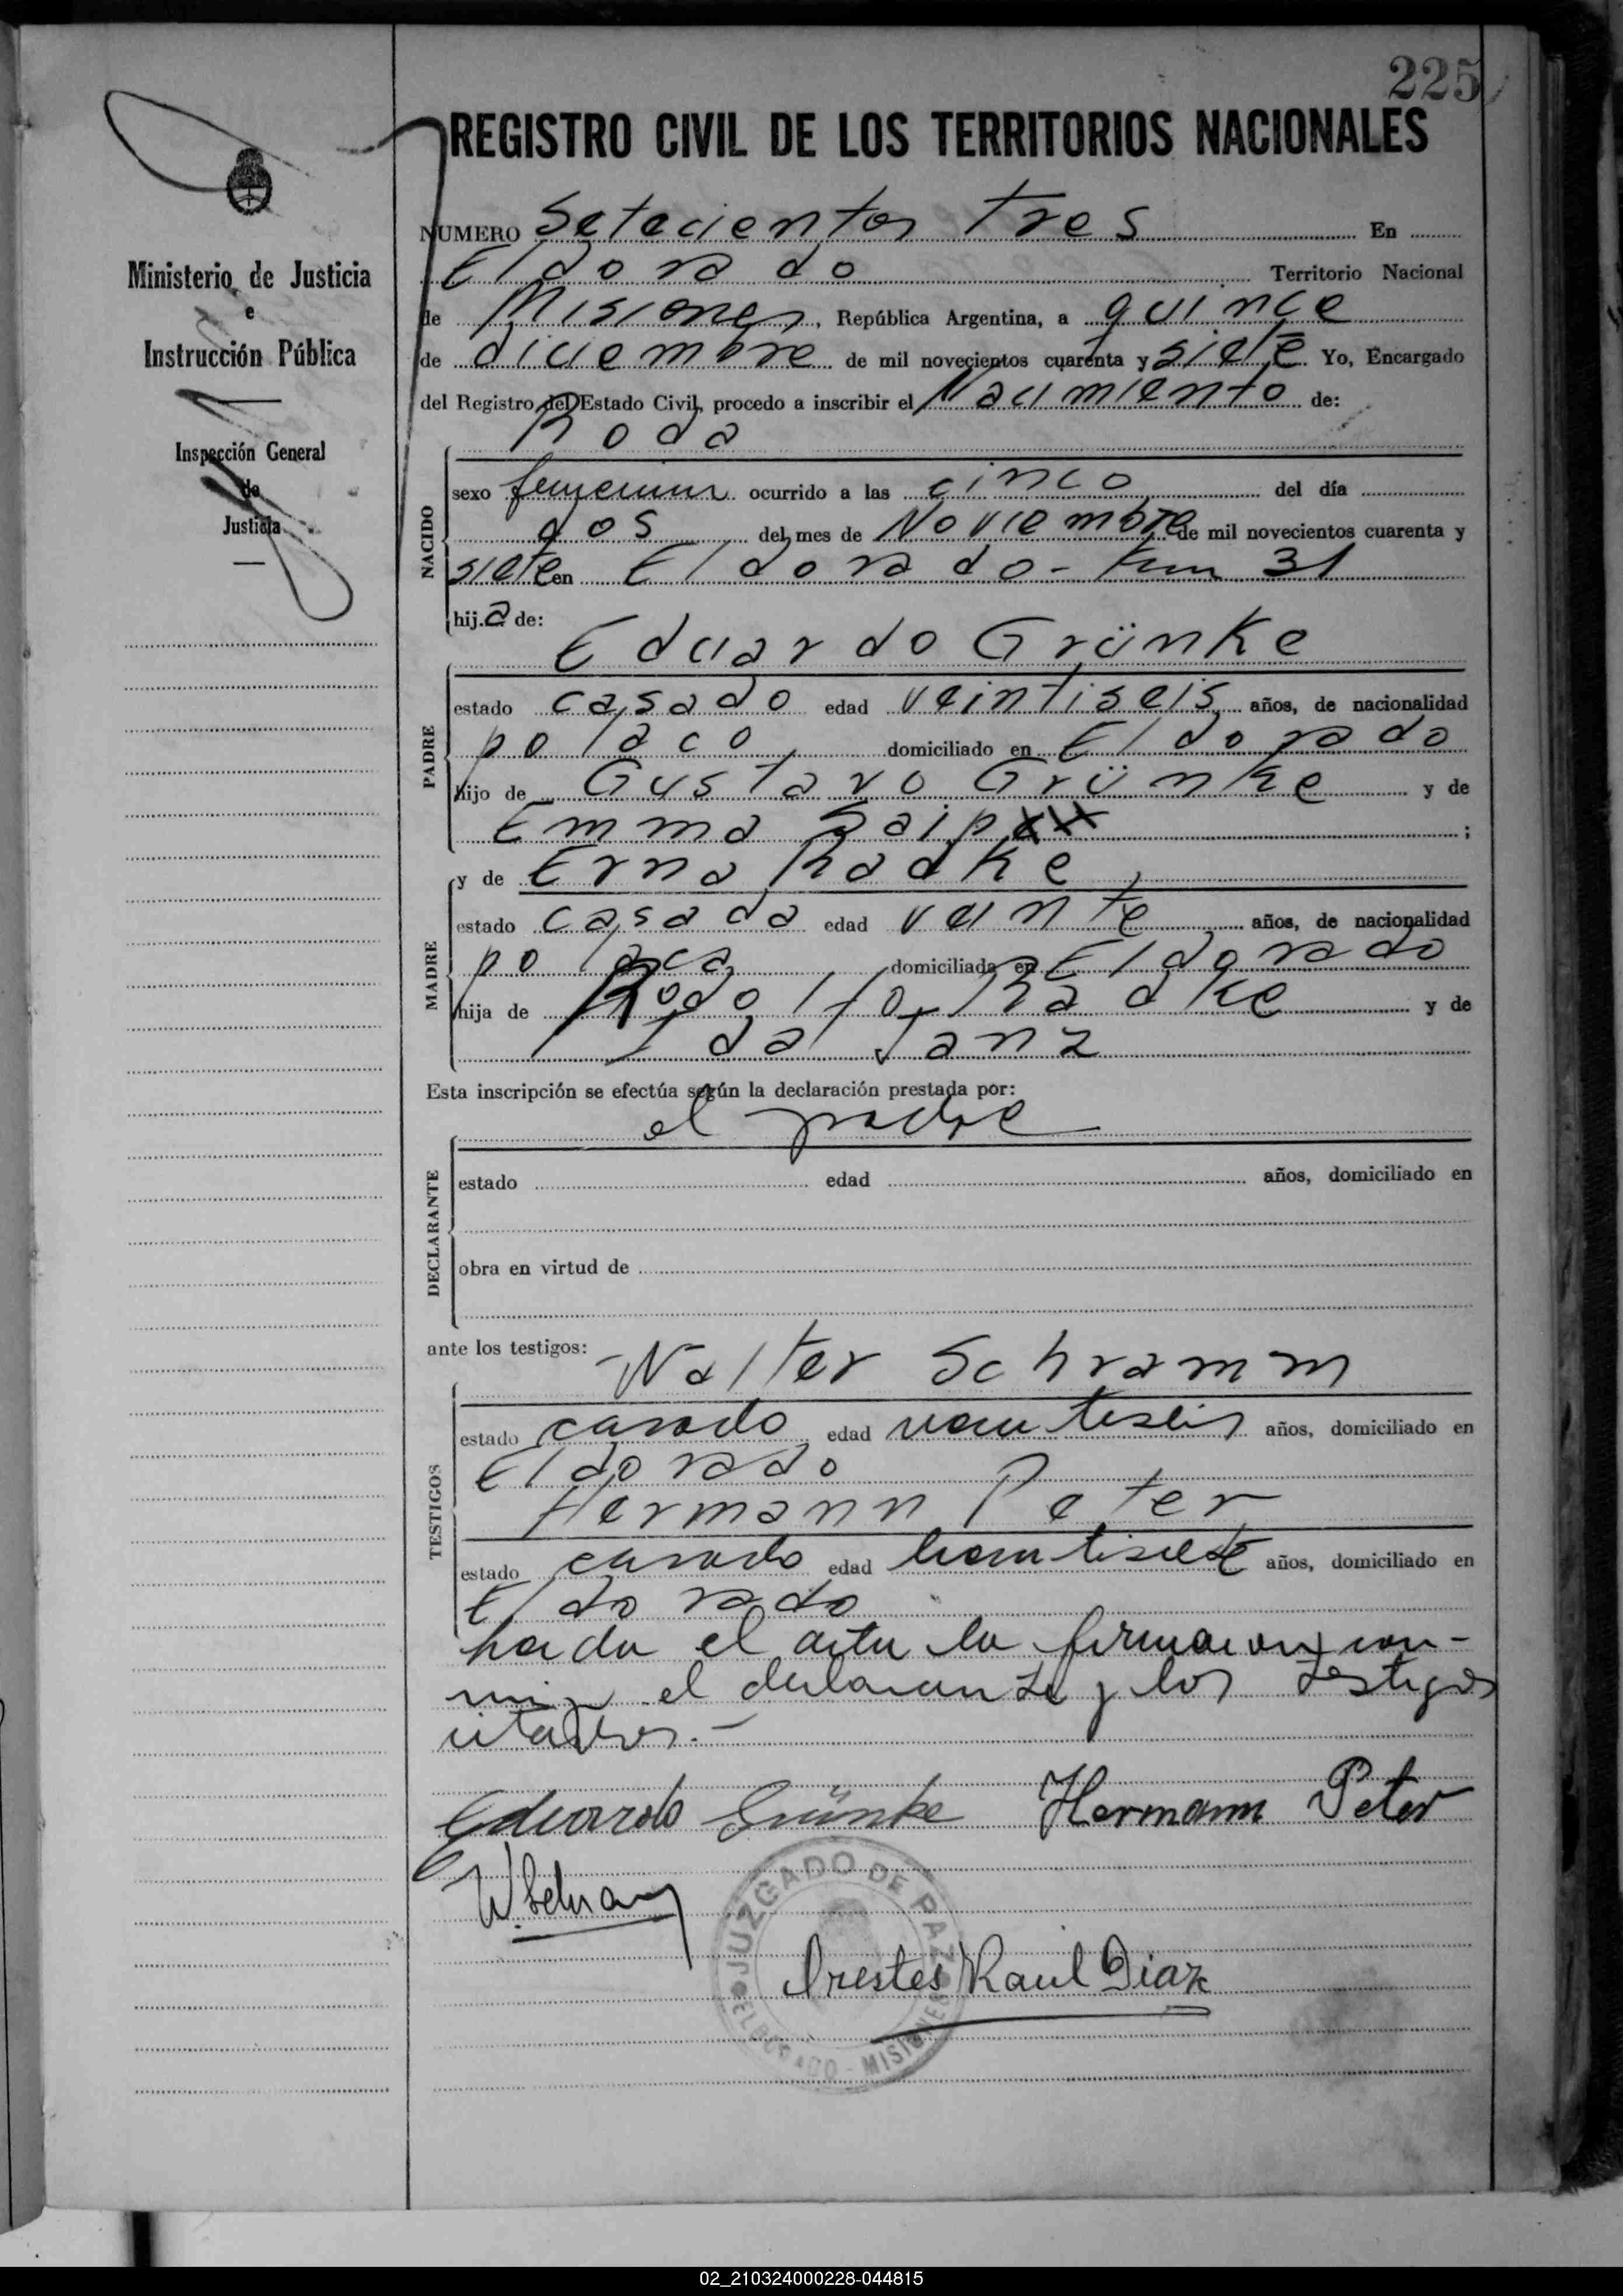 225
REGISTRO CIVIL DE LOS TERRITORIOS NACIONALES
Ministerio de Justicia
e
Instrucción Pública
Inspección General
de
Justicia
NUMERO Setecientos tres En
Eldorado Territorio Nacional
de Misiones, República Argentina, a quince
de diciembre de mil novecientos cuarenta y siete Yo, Encargado
del Registro del Estado Civil, procedo a inscribir el Nacimiento de:
Roda
NACIDO
sexo femenino ocurrido a las cinco del día
dos del mes de Noviembre de mil novecientos cuarenta y
siete en Eldorado - Km 31
hij.a de:
Eduardo Grünke
PADRE
estado casado edad veintiseis años, de nacionalidad
polaco, domiciliado en Eldorado
hijo de Gustavo Grünke y de
Emma Saip ;
y de Erna Radke,
MADRE
estado casada edad veinte años, de nacionalidad
polaca domiciliada en Eldorado
hija de Rodolfo Radke y de
Ida Janz
Esta inscripción se efectúa según la declaración prestada por:
el padre
DECLARANTE
estado edad años, domiciliado en
obra en virtud de
ante los testigos:
Walter Schramm
TESTIGOS
estado casado edad veintiseis años, domiciliado en
Eldorado
Hermann Peter
estado casado edad veintisiete años, domiciliado en
Eldorado
el acta la firmaron con-
migo el declarante y los testigos
citados.-
Eduardo Grünke Hermann Peter
W. Schram
JUZGADO DE PAZ
ELDORADO - MISIONES
Orestes Raul Diaz
02_210324000228-044815